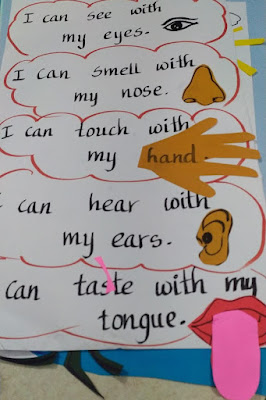 I can see with
my eyes.
I can smell with
my nose.
I can touch with
my hand.
I can hear with
my ears.
can taste with my
tongue.